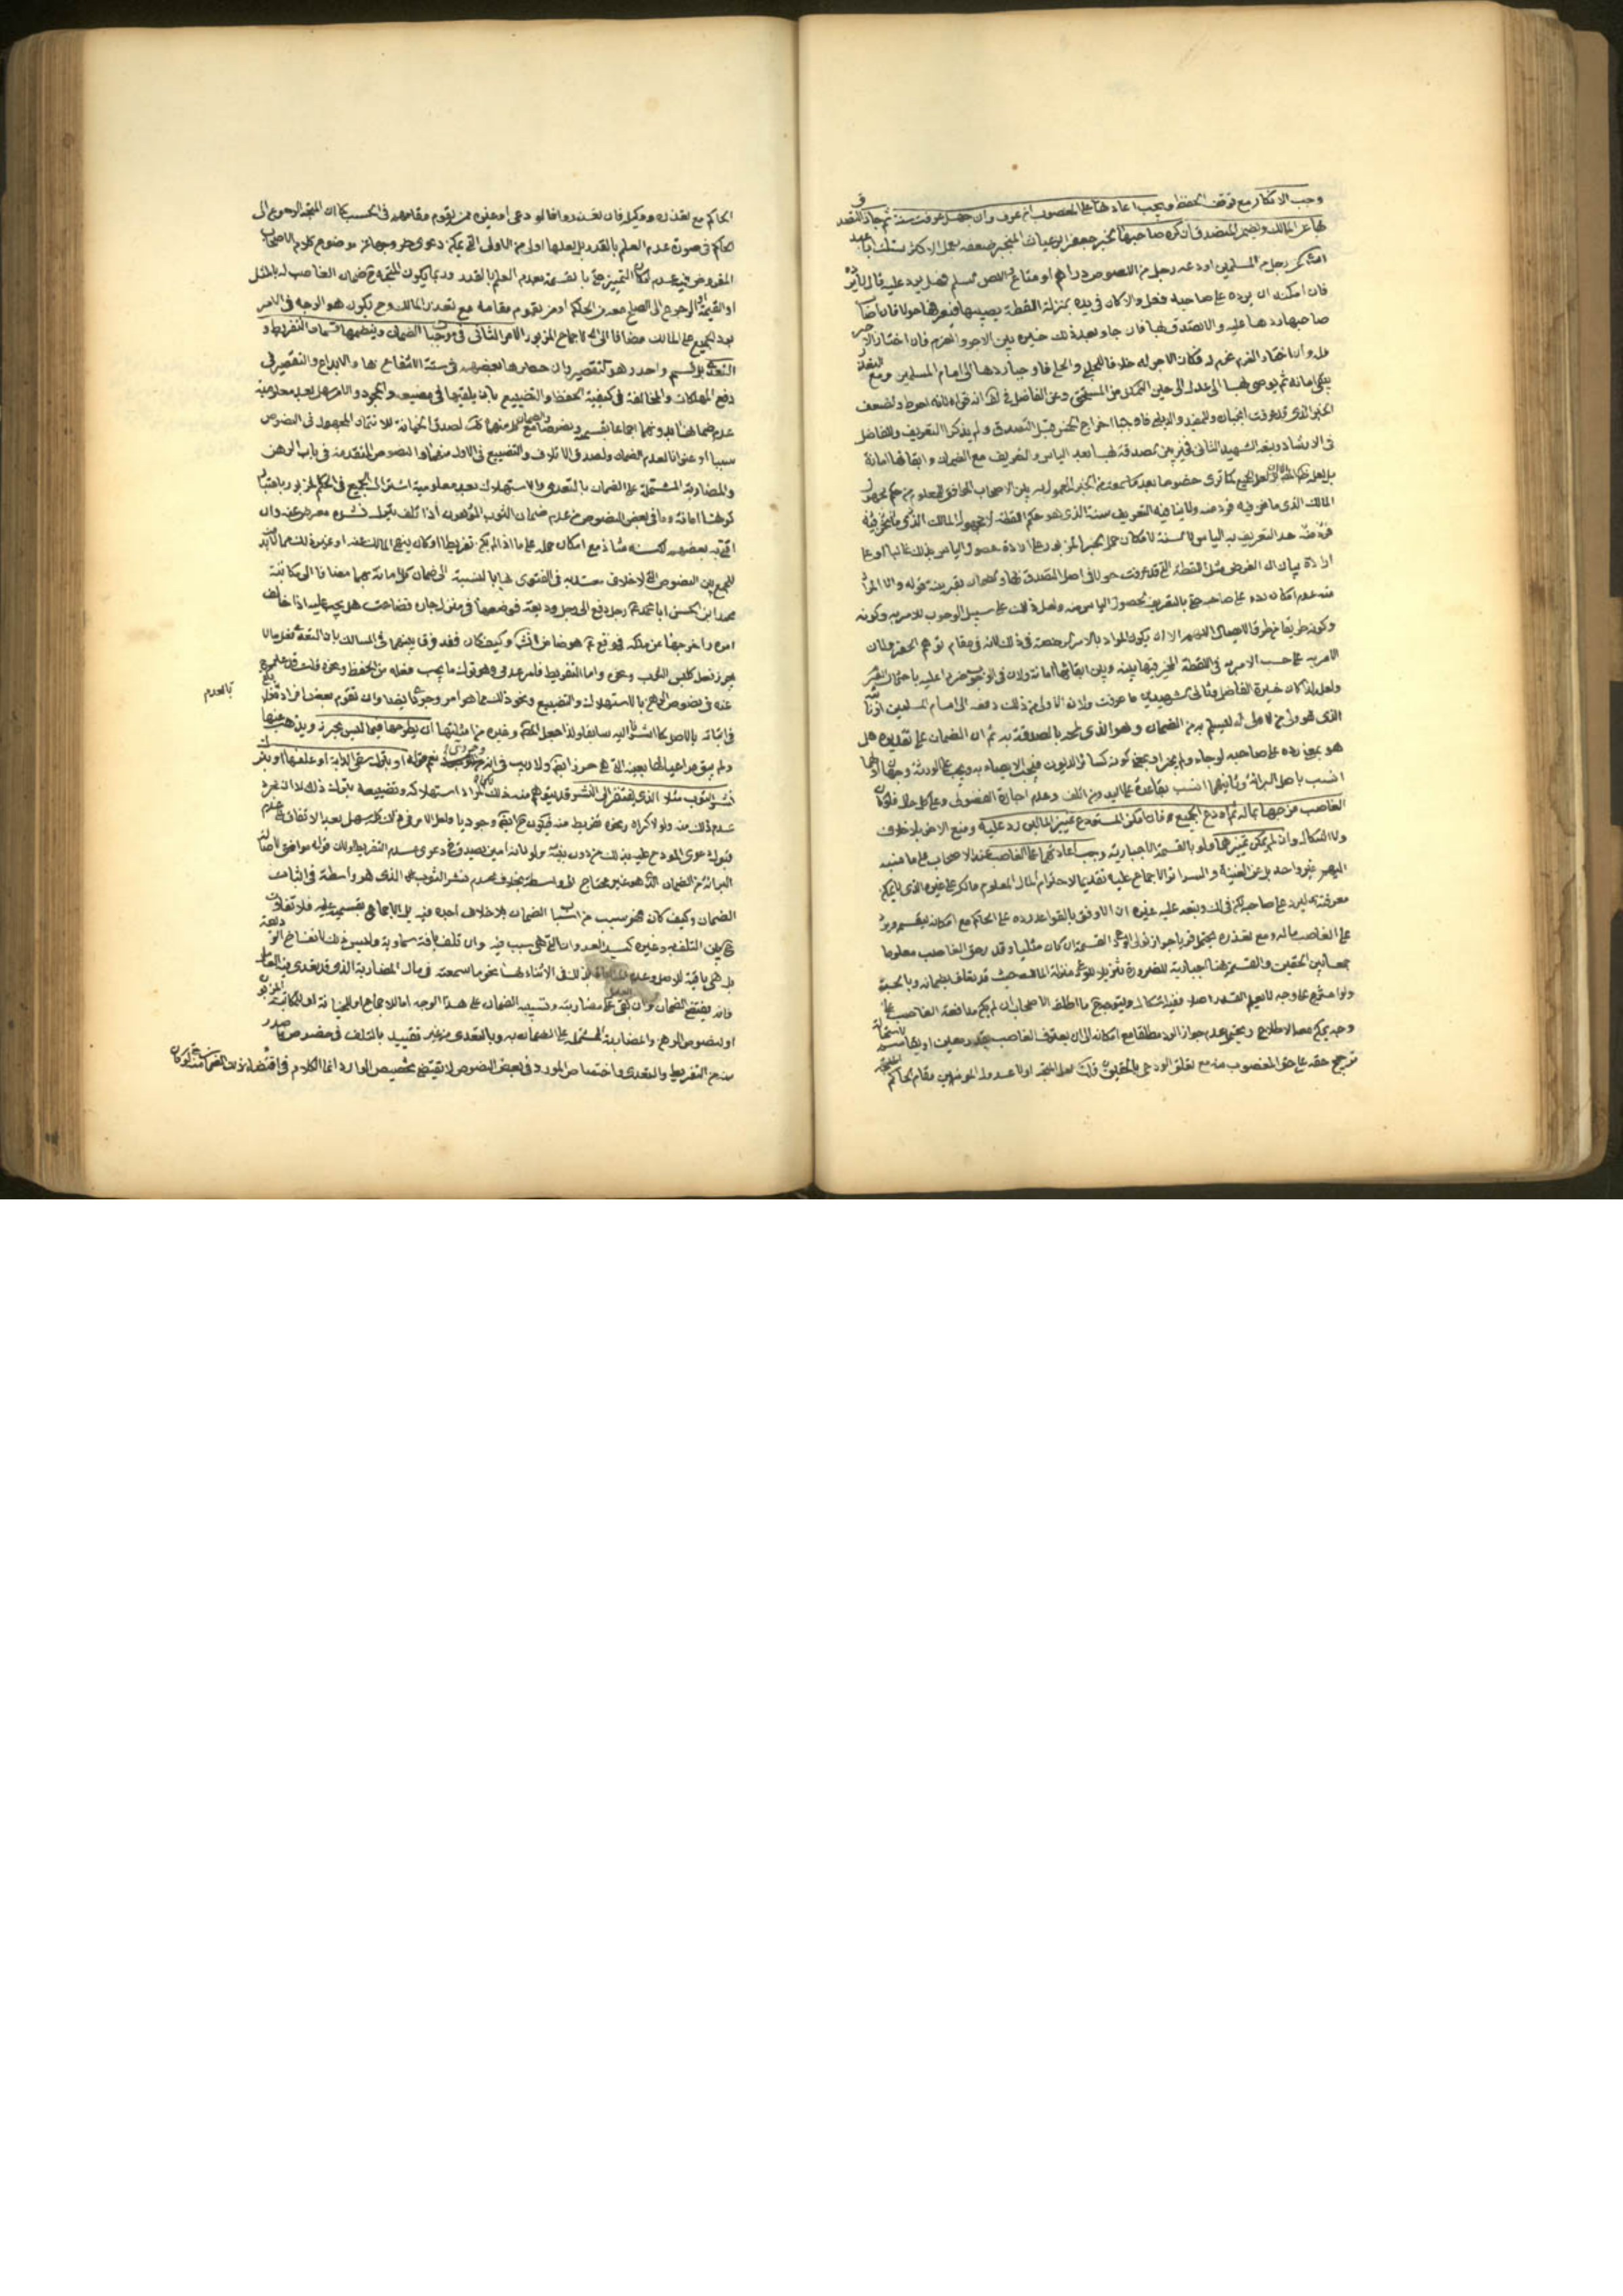 وجب الانكار مع توقف الحفظ ويجب اعادتها على المغصوب منه ان عرف وان جهل عرفت سنة ثم جاز التصدق
بها عن المالك ويضمن المتصدق ان كره صاحبها لخبر حفص بن غياث المنجبر ضعفه بعمل الاكثر سئلت ابا عبد
الله عن رجل من المسلمين اودعه رجل من اللصوص دراهم او متاعا واللص مسلم فهل يرد عليه قال لا يرده
فان امكنه ان يرده على صاحبه فعل والا كان في يده بمنزلة اللقطة يصيبها فيعرفها حولا فان اصاب
صاحبها ردها عليه والا تصدق بها فان جاء بعد ذلك خيره بين الاجر والغرم فان اختار الاجر
فله وان اختار الغرم غرم له وكان الاجر له خلافا للحلي فاوجب ردها الى امام المسلمين ومع التعذر
يبقى امانة ثم يوصي بها الى عدل الى حين التمكن من المستحق وعن الفاضل في لف انه قواه لانه احوط ولضعف
الخبر الذي قد عرفت انجباره وللمفيد والديلمي فاوجبا اخراج الخمس قبل التصدق ولم يذكرا التعريف وللفاضل
في الارشاد وبعده الشهيد الثاني فخير بين الصدقة بها بعد الياس والتعريف مع الضمان وابقائها امانة
المالك الذي ما نحن فيه فرد منه ولا ينافيه التعريف سنة الذي هو حكم اللقطة لا مجهول المالك الذي ما نحن فيه
فرد منه حد التعريف به الياس لا السنة لامكان حمل الخبر المزبور على ارادة حصول الياس بذلك غالبا او على
ارادة بيان ان الفرض مثل اللقطة التي قد عرفت حولا في اصل التصدق بها والضمان بقرينة قوله والا المراد
منه عدم امكان رده على صاحبه حتى بالتعريف لحصول الياس منه ولعل ذلك على سبيل الوجوب للامر به وكونه
وكونه طريقا من طرق الايصال اللهم الا ان يكون المراد بالامر الرخصة في ذلك لانه في مقام توهم الحظر ولان
الامر به على حسب الامر به في اللقطة المخير فيها بينه وبين ابقائها امانة
ولعل لذا كان خيرة الفاضل وثاني الشهيدين ما عرفت ولان الاولى من ذلك دفعه الى امام المسلمين او نائبه
الذي هو ولي من لا ولي له ليسلم به من الضمان وهو الذي يخبره بالصدقة به ثم ان الضمان على تقديره هل
هو بمعنى رده على صاحبه لو جاء ولم يختر الاجر او بمعنى كونه كسائر الديون فيجب الايصاء به ويجب على الورثة وجهان اولهما
انسب باصل البرائة وثانيهما انسب بقاعدة على اليد ومن اتلف وعدم اجازة الفضولي وعلى كل حال فلو كان
الغاصب مزجها بماله ثم اودع الجميع فان امكن المستودع تمييز المالين رد عليه ماله ومنع الاخر بلا خلاف
ولا اشكال وان لم يمكن تمييزهما ولو بالقسمة الاجبارية وجب اعادتهما على الغاصب عند الاصحاب على ما نسبه
اليهم غير واحد بل عن الغنية والسرائر الاجماع عليه تقديما لاحترام المال المعلوم مالكه على غيره الذي لا يمكن
معرفته ليرد على صاحبه لكن في لك وتبعه عليه غيره ان الاوفق بالقواعد رده على الحاكم مع امكانه ليقسمه ويرد
على الغاصب ماله ومع تعذره يحتمل قويا جواز تولي الودعي القسمة ان كان مثليا وقدر حق الغاصب معلوما
جمعا بين الحقين والقسمة هنا اجبارية للضرورة تنزيلا للودعي منزلة المالك حيث قد تعلق بضمانه وبالحسبة
ولو امتزج على وجه لا يعلم القدر اصلا ففيه اشكال ويتوجه ح ما اطلقه الاصحاب ان لم يمكن مدافعة الغاصب على
وجه يمكن معه الاطلاع ويحتمل عدم جواز الرد مطلقا مع امكانه الى ان يعترف الغاصب بقدر معين او يقاسم لاستحالة
ترجيح حقه على حق المغصوب منه مع تعلق الودعي بالحقين قلت لعل المتجه اولا عدول المؤمنين مقام الحاكم
الحاكم مع تعذره ووكيله فان تعذروا فالودعي او غيره ممن يقوم مقامهم في الحسب كما ان المتجه الرجوع الى
الحاكم في صورة عدم العلم بالقدر بل لعلها اولى من الاولى التي يمكن دعوى
المفروض فيه عدم امكان التمييز حتى بالقسمة بعدم العلم بالقدر وربما يكون المتجه ح ضمان الغاصب له بالمثل
او القيمة او الرجوع الى الصلح معه من الحاكم او من يقوم مقامه مع تعذر المالك وح يكون هو الوجه في الامر
برد الجميع على المالك مضافا الى الاجماع المزبور الامر الثاني في موجبات الضمان وينظمها قسمان التفريط و
التعدي بل قسم واحد وهو التقصير بل حصرها بعضهم في ستة الانتفاع بها والايداع والتقصير في
دفع المهلكات والمخالفة في كيفية الحفظ والتضييع بان يلقيها في مضيعة والجحود والامر سهل بعد معلومية
عدم ضمانها بدونهما اجماعا بقسميه ونصوصا والضمان مع كل منهما كك لصدق الخيانة للائتمان المجعول في النصوص
سببا او عنوانا لعدم الضمان ولصدق الاتلاف والتضييع في الاول منهما والنصوص المتقدمة في باب الرهن
والمضاربة المشتملة على الضمان بالتعدي والاستهلاك بعد معلومية اشتراك الجميع في الحكم المزبور باعتبار
كونها امانة وما في بعض النصوص من عدم ضمان الثوب المرهون اذا تلف بترك نشره معرض عنه وان
افتى به بعضهم لكنه شاذ مع امكان حمله على ما اذا لم يكن تفريطا او كان بنهي المالك عنه او غير ذلك مما لا بد
للجمع بين النصوص التي لا خلاف معتد به في الفتوى بها بالنسبة الى ضمان كل امانة بهما مضافا الى مكاتبة
محمد ابن الحسن ابا محمد ع رجل دفع الى رجل وديعة فوضعها في منزل جاره فضاعت هل يجب عليه اذا خالف
امره واخرجها عن ملكه فوقع ع هو ضامن انش وكيف كان فقد فرق بينهما في المسالك بان التعدي فعل ما لا
يجوز فعله كلبس الثوب ونحوه واما التفريط فامر عدمي وهو ترك ما يجب فعله من الحفظ ونحوه قلت قد علم مما
عنه في نصوص الرهن بالاستهلاك والتضييع ونحو ذلك مما هو امر وجودي
بالعدم
في اثباته بالاصل كما اشرنا اليه سابقا ولذا جعل المص وغيره من امثلتها ان يطرحها فيما ليس بحرز ويذهب عنها
ولم يبق مراعيا لها بعينه التي هي حرز ايضا ولا ريب في انه وجودي نعم قوله او يترك سقي الدابة او علفها او نشر
نشر الثوب مثلا الذي يفتقر الى النشر قد يتوهم منه ذلك لكن المراد استهلاكه وتضييعه بترك ذلك لا ان مجرد
عدم ذلك منه ولو لاكراه ونحوه تفريط منه فيكون ح ايضا وجوديا ولعل الامر في ذلك كله سهل بعد الاتفاق على عدم
قبول دعوى المودع عليه بذلك من دون بينة ولو لانه امين يصدق في دعوى عدم التفريط ولان قوله موافق لاصالة
البرائة من الضمان
الضمان وكيف كان فهو سبب من اسباب الضمان بلا خلاف اجده فيه بل الاجماع بقسميه عليه فلا تفاوت
ح بين التلف به وغيره كسيد العدوان التي هي سبب فيه وان تلف بافة سماوية وليس ذلك لانفساخ الوديعة
بل هي باقية للاصل وعدم
فانه يقتضي الضمان وان بقي على مضاربته وتسبيب الضمان على هذا الوجه اما للاجماع او للخيانة او للمكاتبة المزبورة
او لنصوص الرهن والمضاربة المشتملة على الضمان به وبالتعدي من غير تقييد بالتلف في خصوص ما صدر
منه من التفريط والتعدي واختصاص المورد في بعض النصوص لا يقتضي تخصيص الوارد انما الكلام في اقتضاء